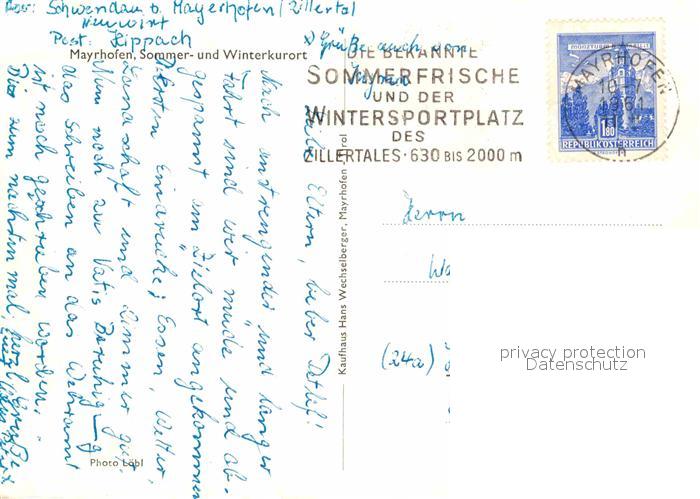 Schwendau b. Mayerhofen/Zillertal
Neuwirt
Post: Hippach
Mayrhofen, Sommer- und Winterkurort
Grüße auch von
DIE BEKANNTE
SOMMERFRISCHE
UND DER
WINTERSPORTPLATZ
DES
ZILLERTALES · 630 BIS 2000 m
MAYRHOFEN
1961
1.80
REPUBLIK ÖSTERREICH
Eltern, lieber Detlef!
Nach anstrengender und langer
Fahrt sind wir müde und ab-
gespannt am Zielort angekommen.
Eindrücke; Essen, Wetter,
Landschaft und Zimmer gut.
Nun noch zu Vatis Beruhigung
das Schreiben an das Wehramt
ist noch geschrieben worden.
Bis zum nächsten mal,
Kaufhaus Hans Wechselberger, Mayrhofen Tirol
Herrn
(24a)
privacy protection
Datenschutz
Photo Löbl